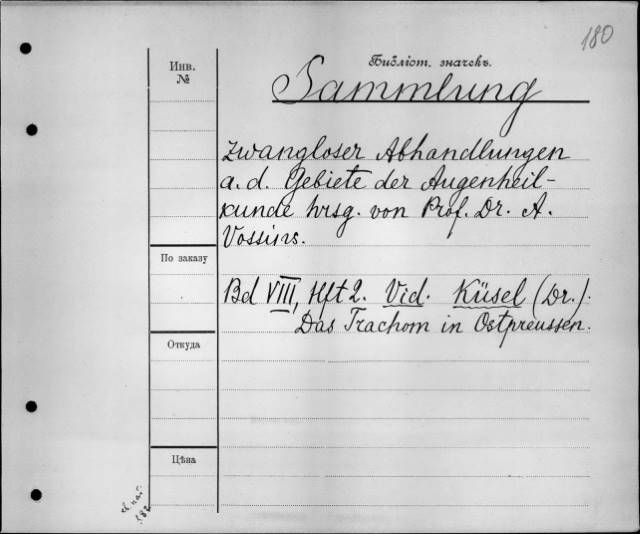 180
Библіот. значекъ.
Инв.
№
Sammlung
zwangloser Abhandlungen
a. d. Gebiete der Augenheil-
kunde hrsg. von Prof. Dr. A.
Vossius.
По заказу
Bd VIII, Hft 2. Vid. Küsel (Dr.).
Das Trachom in Ostpreussen.
Откуда
Цѣна